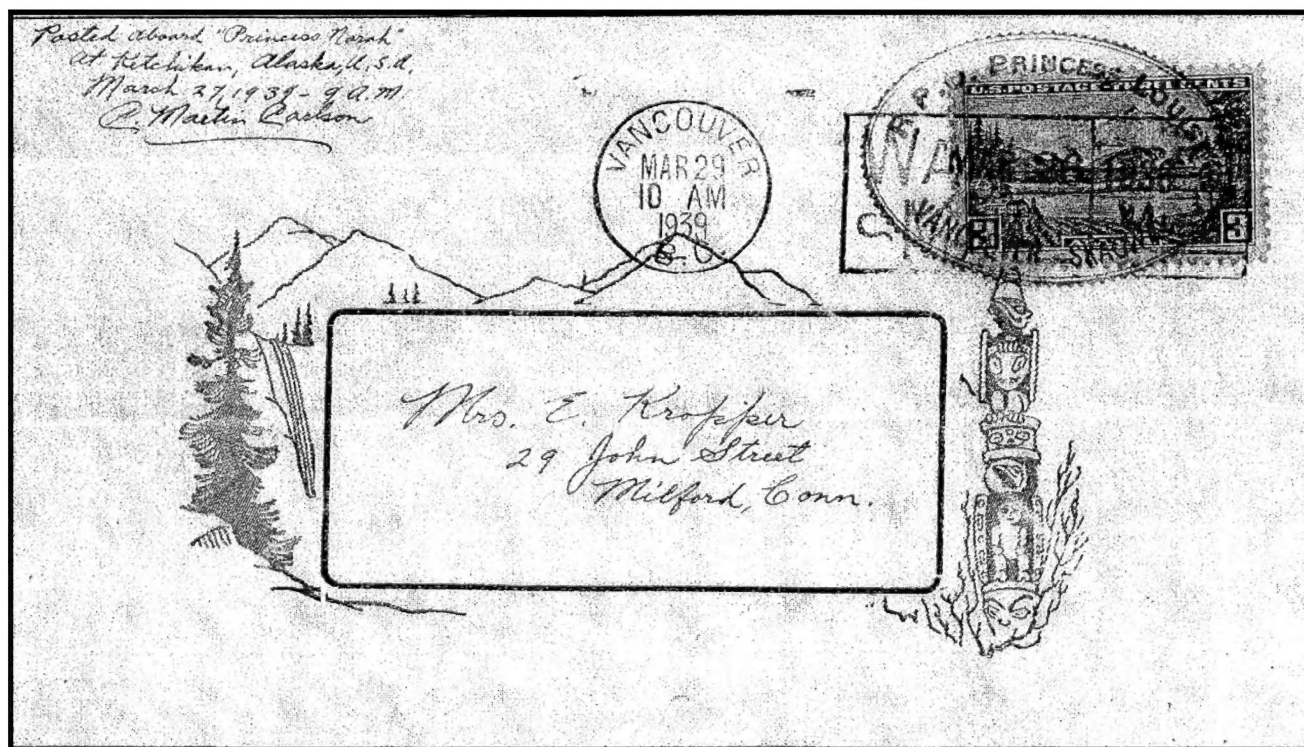 Posted aboard "Princess Norah"
At Ketchikan, Alaska, U.S.A.
March 27, 1939 - 9 A.M
C. Martin Carlson
VANCOUVER
MAR 29
10 AM
1939
B.C
R.P.O. PRINCESS LOUISE
U.S. POSTAGE - THREE CENTS
3 3
Mrs. E. Kropper
29 John Street
Milford, Conn.